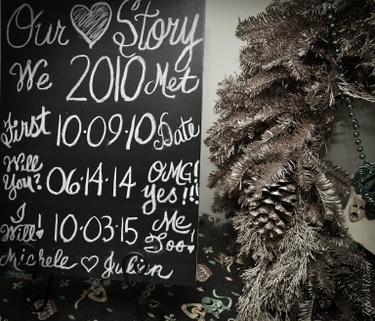 Our Story
We 2010 Met
First 10·09·10 Date
Will You? 06·14·14 OMG! Yes!!!
I Will! 10·03·15 Me Too!
Michele Julien